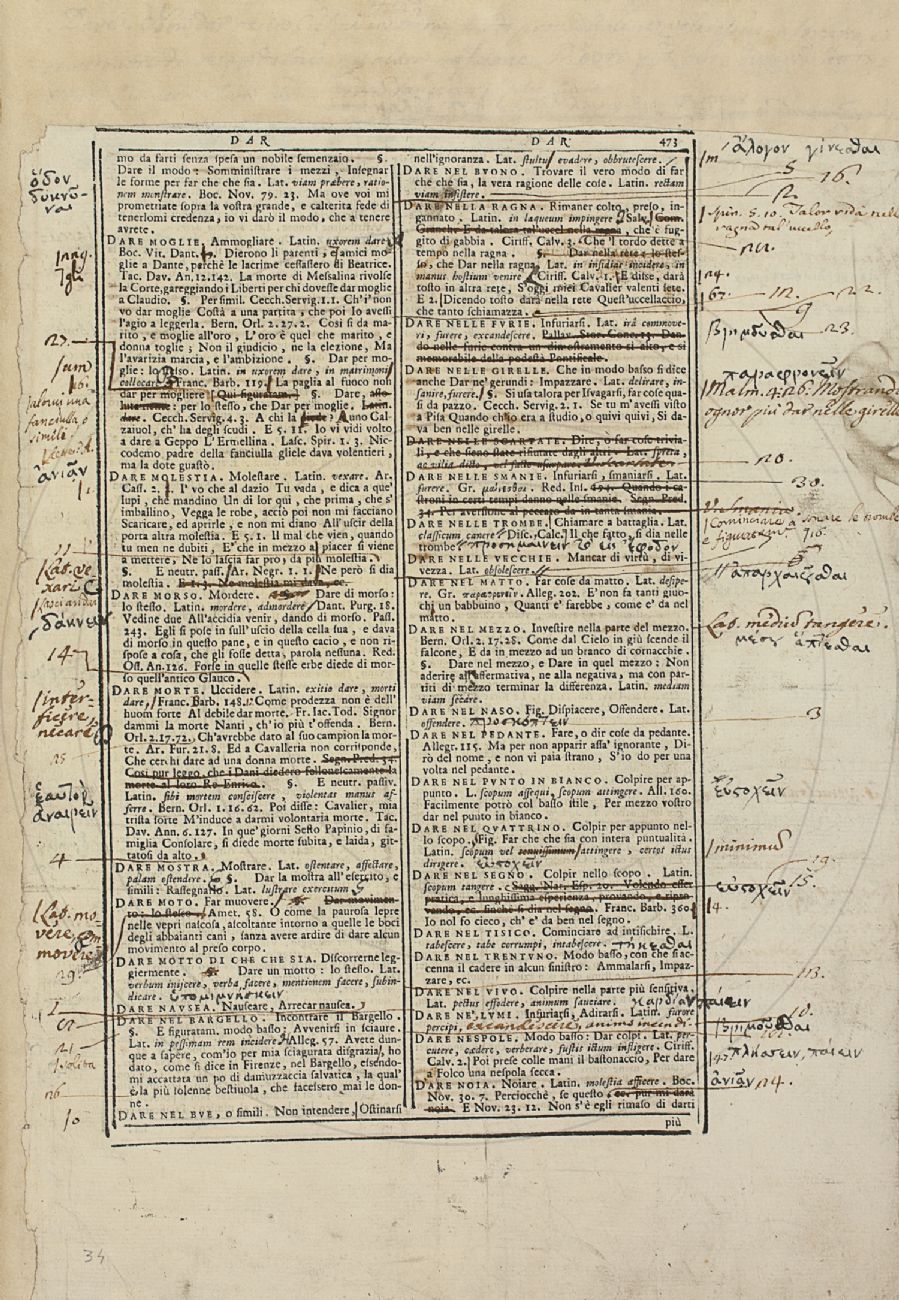 DAR
DAR
473
mo da farti senza spesa un nobile semenzaio. §.
Dare il modo: Somministrare i mezzi, Insegnar
le forme per far che che sia. Lat. viam præbere, ratio-
nem monstrare. Boc. Nov. 79. 23. Ma ove voi mi
promettiate sopra la vostra grande, e calterita fede di
tenerlomi credenza, io vi darò il modo, che a tenere
avrete.
DARE MOGLIE, Ammogliare. Latin. uxorem dare
Boc. Vit. Dant. Dierono li parenti, e amici mo-
glie a Dante, perchè le lacrime cessassero di Beatrice.
Tac. Dav. An. 12. 142. La morte di Messalina rivolse
la Corte, gareggiando i Liberti per chi dovesse dar moglie
a Claudio. §. Per simil. Cecch. Servig. 1. 1. Ch'i' non
vo dar moglie Costà a una partita, che poi Io avessi
l'agio a leggerla. Bern. Orl. 2. 27. 2. Così si da ma-
rito, e moglie all'oro, L'oro è quel che marito, e
donna toglie; Non il giudicio, ne la elezione, Ma
l'avarizia marcia, e l'ambizione. §. Dar per mo-
glie: lo stesso. Latin. in uxorem dare, in matrimoni
collocare. Franc. Barb. 119. La paglia al fuoco non
dar per mogliere (Qui figuratam.) §. Dare, asso-
lutamente: per lo stesso, che Dar per moglie. Latin.
dare. Cecch. Servig. 4. 3. A chi la A uno Cal-
zaiuol, ch'ha degli scudi. E 5. 11. Io vi vidi volto
a dare a Geppo L'Ermellina. Lasc. Spir. 1. 3. Nic-
codemo padre della fanciulla gliele dava volentieri,
ma la dote guastò.
DARE MOLESTIA. Molestare. Latin. vexare. Ar.
Cass. 2. I' vo che al dazio Tu vada, e dica a que'
lupi, che mandino Un di lor qui, che prima, che s'
imballino, Vegga le robe, acciò poi non mi facciano
Scaricare, ed aprirle, e non mi diano All'uscir della
porta altra molestia. E 5. 1. Il mal che vien, quando
tu men ne dubiti, E' che in mezzo al piacer si viene
a mettere, Ne lo lascia far pro, da più molestia.
§. E neutr. pass. Ar. Negr. 1. 1. Ne però si dia
molestia. E 1. 3. Ne molestia mi dava, ec.
DARE MORSO. Mordere. Dare di morso:
lo stesso. Latin. mordere, admordere Dant. Purg. 18.
Vedine due All'accidia venir, dando di morso. Pass.
243. Egli si pose in sull'uscio della cella sua, e dava
di morso in questo pane, e in questo cacio, e non ri-
spose a cosa, che gli fosse detta, parola nessuna. Red.
Oss. An. 126. Forse in quelle stesse erbe diede di mor-
so quell'antico Glauco.
DARE MORTE. Uccidere. Latin. exitio dare, morti
dare, Franc. Barb. 148. Come prodezza non è dell'
huom forte Al debile dar morte. Fr. Iac. Tod. Signor
dammi la morte Nanti, ch'io più t'offenda. Bern.
Orl. 2. 17. 72. Ch'avrebbe dato al suo campion la mor-
te. Ar. Fur. 21. 8. Ed a Cavalleria non corrisponde,
Che cerchi dare ad una donna morte. Segn. Pred. 34.
Così pur leggo, che i Dani diedero fellonescamente la
morte al loro Re Enrico. §. E neutr. passiv.
Latin. sibi mortem consciscere, violentas manus af-
ferre. Bern. Orl. 1. 16. 62. Poi disse: Cavalier, mia
trista sorte M'induce a darmi volontaria morte. Tac.
Dav. Ann. 6. 127. In que' giorni Sesto Papinio, di fa-
miglia Consolare, si diede morte subita, e laida, git-
tatosi da alto.
DARE MOSTRA. Mostrare. Lat. ostentare, affectare,
palam ostendere. §. Dar la mostra all'esercito, e
simili: Rassegnarlo. Lat. lustrare exercitum
DARE MOTO. Far muovere. Dar movimen-
to: lo stesso. Amet. 58. O come la paurosa lepre
nelle vepri nascosa, ascoltante intorno a quelle le boci
degli abbaianti cani, sanza avere ardire di dare alcun
movimento al preso corpo.
DARE MOTTO DI CHE CHE SIA. Discorrerne leg-
giermente. Dare un motto: lo stesso. Lat.
verbum injicere, verba facere, mentionem facere, subin-
dicare. ὑπομιμνήσκειν
DARE NAUSEA. Nauseare, Arrecar nausea.
DARE NEL BARGELLO. Incontrare il Bargello.
§. E figuratam. modo basso; Avvenirsi in sciaure.
Lat. in pessimam rem incidere. Alleg. 57. Avete dun-
que a sapere, com'io per mia sciagurata disgrazia, ho
dato, come si dice in Firenze, nel Bargello, essendo-
mi accattata un po di damuzzaccia salvatica, la qual'
è la più solenne bestiuola, che facessero mai le don-
ne.
DARE NEL BUE, o simili. Non intendere, Ostinarsi
nell'ignoranza. Lat. stultus evadere, obbrutescere.
DARE NEL BUONO. Trovare il vero modo di far
che che sia, la vera ragione delle cose. Latin. rectam
viam insistere.
DARE NELLA RAGNA. Rimaner colto, preso, in-
gannato. Latin. in laqueum impingere. Salv.
Granch. E da talora tal'uccel nella ragna, che è fug-
gito di gabbia. Ciriff. Calv. 3. Che 'l tordo dette a
tempo nella ragna. §. Dar nella rete: lo stes-
so, che Dar nella ragna. Lat. in insidias incidere, in
manus hostium venire. Ciriff. Calv. 1. E disse, darà
tosto in altra rete, S'oggi miei Cavalier valenti sete.
E 2. Dicendo tosto darà nella rete Quest'uccellaccio,
che tanto schiamazza.
DARE NELLE FURIE. Infuriarsi. Lat. irâ commove-
ri, furere, excandescere. Pallav. Stor. Conc. 13. Dan-
do nelle furie contra un disostramento sì alto, e sì
memorabile della podestà Pontificale.
DARE NELLE GIRELLE. Che in modo basso si dice
anche Dar ne' gerundi: Impazzare. Lat. delirare, in-
sanire, furere. §. Si usa talora per Isvagarsi, far cose qua-
si da pazzo. Cecch. Servig. 2. 1. Se tu m'avessi visto
a Pisa Quando ch'io era a studio, o quivi quivi, Si da-
va ben nelle girelle.
DARE NELLE SCARTATE. Dire, o far cose trivia-
li, e che sieno state rifiutate dagli altri.
DARE NELLE SMANIE. Infuriarsi, smaniarsi. Lat.
furere. Gr. μαίνεσθαι. Red. Ins. Quando i ca-
stroni in certi tempi danno nelle smanie. Segn. Pred.
34. Per avversione al peccato da in tanta smania.
DARE NELLE TROMBE. Chiamare a battaglia. Lat.
classicum canere. Disc. Calc. Il che fatto, si dia nelle
trombe.
DARE NELLE VECCHIE. Mancar di virtù, di vi-
vezza. Lat. obsolescere.
DARE NEL MATTO. Far cose da matto. Lat. desipe-
re. Gr. παραπαίειν. Alleg. 202. E' non fa tanti giuo-
chi un babbuino, Quanti e' farebbe, come e' da nel
matto.
DARE NEL MEZZO. Investire nella parte del mezzo.
Bern. Orl. 2. 15. 28. Come dal Cielo in giù scende il
falcone, E da in mezzo ad un branco di cornacchie.
§. Dare nel mezzo, e Dare in quel mezzo: Non
aderire all'affermativa, ne alla negativa, ma con par-
titi di mezzo terminar la differenza. Latin. mediam
viam secare.
DARE NEL NASO. Fig. Dispiacere, Offendere. Lat.
offendere. προσκόπτειν
DARE NEL PEDANTE. Fare, o dir cose da pedante.
Allegr. 115. Ma per non apparir assa' ignorante, Di-
rò del nome, e non vi paia strano, S'io do per una
volta nel pedante.
DARE NEL PUNTO IN BIANCO. Colpire per ap-
punto. L. scopum assequi, scopum attingere. All. 160.
Facilmente potrò col basso stile, Per mezzo vostro
dar nel punto in bianco.
DARE NEL QUATTRINO. Colpir per appunto nel-
lo scopo. Fig. Far che che sia con intera puntualità.
Latin. scopum vel attingere, certos ictus
dirigere. εὐστοχεῖν
DARE NEL SEGNO. Colpir nello scopo. Latin.
scopum tangere. Sagg. Nat. Esp. 20. Volendo esser
pratica, e lunghissima esperienza, provando, e ripro-
vando, ec. finchè si dia nel segno. Franc. Barb. 360.
Io nol so cieco, ch'e' dà ben nel segno.
DARE NEL TISICO. Cominciare ad intisichire. L.
tabescere, tabe corrumpi, intabescere. τήκεσθαι
DARE NEL TRENTUNO. Modo basso, con che si ac-
cenna il cadere in alcun sinistro: Ammalarsi, Impaz-
zare, ec.
DARE NEL VIVO. Colpire nella parte più sensitiva.
Lat. pectus effodere, animum sauciare. καρδίαν παίειν
DARE NE' LUMI. Infuriarsi, Adirarsi. Latin. furore
percipi, excandescere, animo incendi.
DARE NESPOLE. Modo basso: Dar colpi. Lat. per-
cutere, cædere, verberare, fustis ictum infligere. Ciriff.
Calv. 2. Poi prese colle mani il bastonaccio, Per dare
a Folco una nespola secca.
DARE NOIA. Noiare. Latin. molestia afficere. Boc.
Nov. 30. 7. Perciocchè, se questo ec. pur mi darà
noia. E Nov. 23. 12. Non s'è egli rimaso di darti
più
ὅδον
27.
ἀνιᾶν
11
Lat. ve-
xare
δάκνειν
14
inter-
ficere,
necare
25
ἑαυτὸν
ἀναιρεῖν
4
Lat. mo-
vere
movere
29
1
2
21
26
10
ἄλογον γίνεσθαι
5
16.
12.
Spir. 5. 10. Talor vi dà nell
ragna tal'uccello,
22.
14.
67.
12.
22.
9
βριμοῦσθαι
23.
παραφρονεῖν
Malm. 4. 26. Mostrando
ognor più dar nelle girelle
20.
30.
Cominciare a sonare le trombe
e figuratam.
16.
5
ἀπαρχαΐζεσθαι
Lat. medium tangere.
3
εὐστοχεῖν
minimum
19.
εὐστοχεῖν
15.
14.
13.
10.
βριμοῦσθαι
πλήσσειν, παίειν
ἀνιᾶν
24.
34